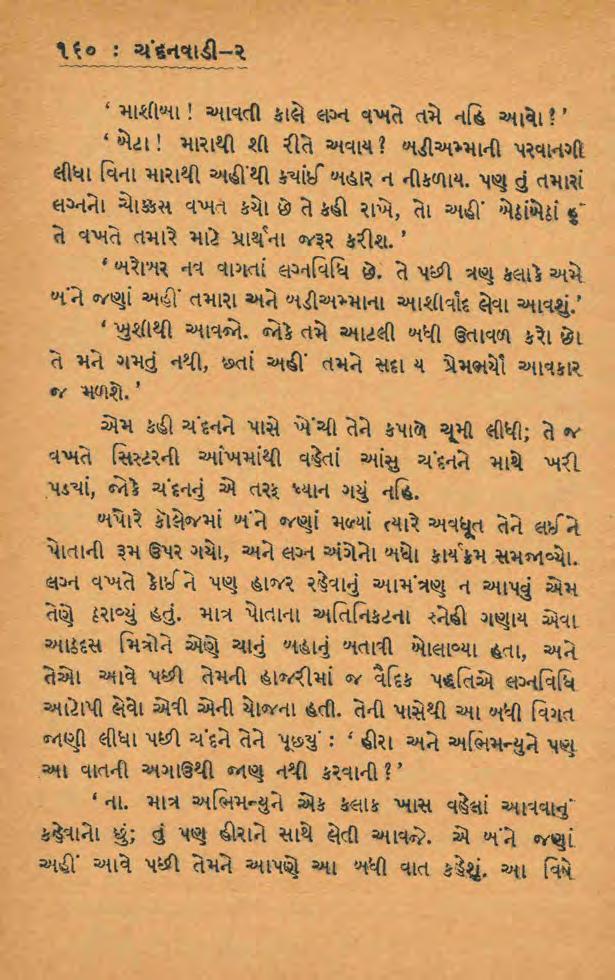 ૧૬૦ : ચંદનવાડી–૨
‘ માશીબા ! આવતી કાલે લગ્ન વખતે તમે નહિ આવો ? ’
‘ બેટા ! મારાથી શી રીતે અવાય ? બડીઅમ્માની પરવાનગી
લીધા વિના મારાથી અહીંથી કયાંઈ બહાર ન નીકળાય. પણ તું તમારાં
લગ્નનો ચોક્કસ વખત કયો છે તે કહી રાખે, તો અહીં બેઠાંબેઠાં હું
તે વખતે તમારે માટે પ્રાર્થના જરૂર કરીશ. ’
‘ બરોબર નવ વાગતાં લગ્નવિધિ છે. તે પછી ત્રણ કલાકે અમે
બંને જણાં અહીં તમારા અને બડીઅમ્માના આશીર્વાદ લેવા આવશું.’
‘ ખુશીથી આવજો. જોકે તમે આટલી બધી ઉતાવળ કરો છો
તે મને ગમતું નથી, છતાં અહીં તમને સદા ય પ્રેમભર્યો આવકાર
જ મળશે. ’
એમ કહી ચંદનને પાસે ખેંચી તેને કપાળે ચૂમી લીધી; તે જ
વખતે સિસ્ટરની આંખમાંથી વહેતાં આંસુ ચંદનને માથે ખરી
પડયાં, જોકે ચંદનનું એ તરફ ધ્યાન ગયું નહિ.
બપોરે કૉલેજમાં બંને જણાં મળ્યાં ત્યારે અવધૂત તેને લઈને
પોતાની રૂમ ઉપર ગયો, અને લગ્ન અંગેનો બધો કાર્યક્રમ સમજાવ્યો.
લગ્ન વખતે કોઈને પણ હાજર રહેવાનું આમંત્રણ ન આપવું એમ
તેણે ઠરાવ્યું હતું. માત્ર પોતાના અતિનિકટના સ્નેહી ગણાય એવા
આઠદસ મિત્રોને એણે ચાનું બહાનું બતાવી બોલાવ્યા હતા, અને
તેઓ આવે પછી તેમની હાજરીમાં જ વૈદિક પદ્ધતિએ લગ્નવિધિ
આટોપી લેવો એવી એની યોજના હતી. તેની પાસેથી આ બધી વિગત
જાણી લીધા પછી ચંદને તેને પૂછયું : ‘ હીરા અને અભિમન્યુને પણ
આ વાતની અગાઉથી જાણ નથી કરવાની ? ’
‘ ના. માત્ર અભિમન્યુને એક કલાક ખાસ વહેલાં આવવાનું
કહેવાનો છું; તું પણ હીરાને સાથે લેતી આવજે. એ બંને જણાં
અહીં આવે પછી તેમને આપણે આ બધી વાત કહેશું. આ વિષે